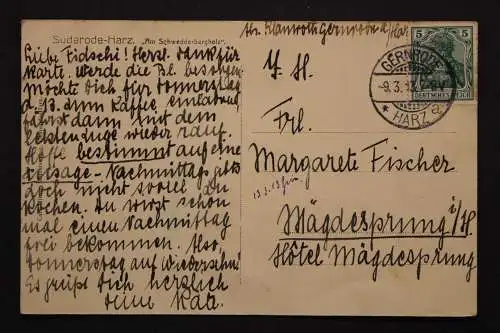 Suderode-Harz. „Am Schwedderbergholz".
Liebe Fidschi! Herzl. Dank für
Karte. Werde die Bl. besorgen
möchte Dich für Donnerstag
d. 13. zum Kaffee einladen
fährst dann mit dem
wieder rauf.
Hoffe bestimmt auf eine
Zusage - Nachmittags gibts
doch nicht soviel zu
kochen. Du wirst schon
mal einen Nachmittag
frei bekommen. Also,
Donnerstag auf Wiedersehn!
Es grüßt Dich herzlich
Deine Kät.
Gernrode a/Harz
5
DEUTSCHES REICH
GERNRODE
-9.3.13.
* HARZ a
Frl.
Margarete Fischer
13.3.13
Mägdesprung i/H.
Hôtel Mägdesprung